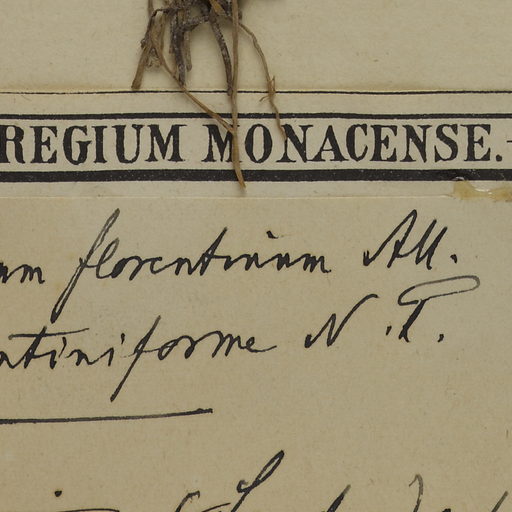 REGIUM MONACENSE.-
um florentinum All.
ntiniforme N. T.